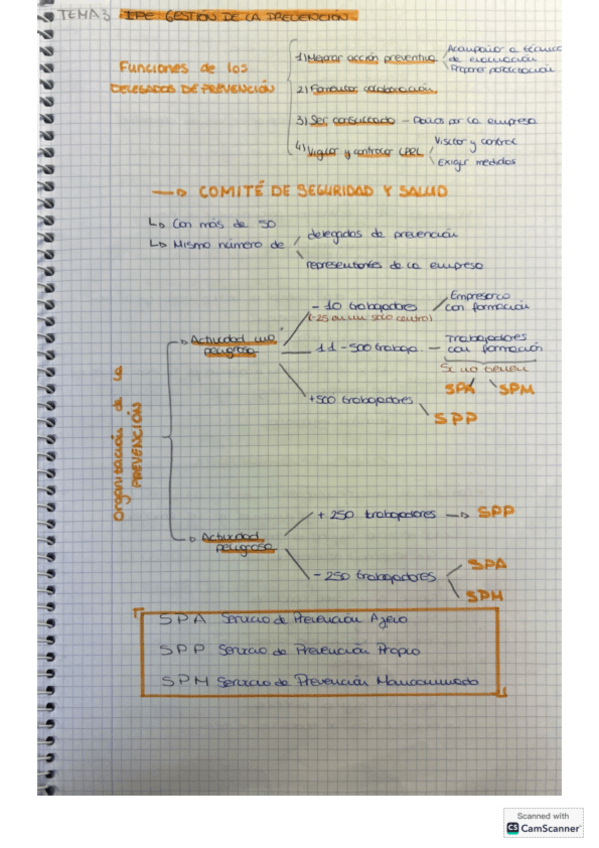 TEMA 3 IPE GESTIÓN DE LA PREVENCIÓN
Funciones de los
DELEGADOS DE PREVENCIÓN
1) Mejorar acción preventiva
Acompañar a técnicos
de evaluación
Proponer paralización
2) Fomentar colaboración
3) Ser consultado - Datos por la empresa
4) Vigilar y controlar LPRL
Visitar y control
Exigir medidas
COMITÉ DE SEGURIDAD Y SALUD
Con más de 50
Mismo número de
delegados de prevención
representantes de la empresa
Organización de la
PREVENCIÓN
Actividad no
peligrosa
- 10 trabajadores
(-25 en un solo centro)
Empresario
con formación
11 - 500 trabaja. - Trabajadores
con formación
Si no tienen
SPA SPM
+500 trabajadores
SPP
Actividad
peligrosa
+ 250 trabajadores SPP
- 250 trabajadores
SPA
SPM
SPA Servicio de Prevención Ajeno
SPP Servicio de Prevención Propio
SPM Servicio de Prevención Mancomunado
Scanned with
CS CamScanner